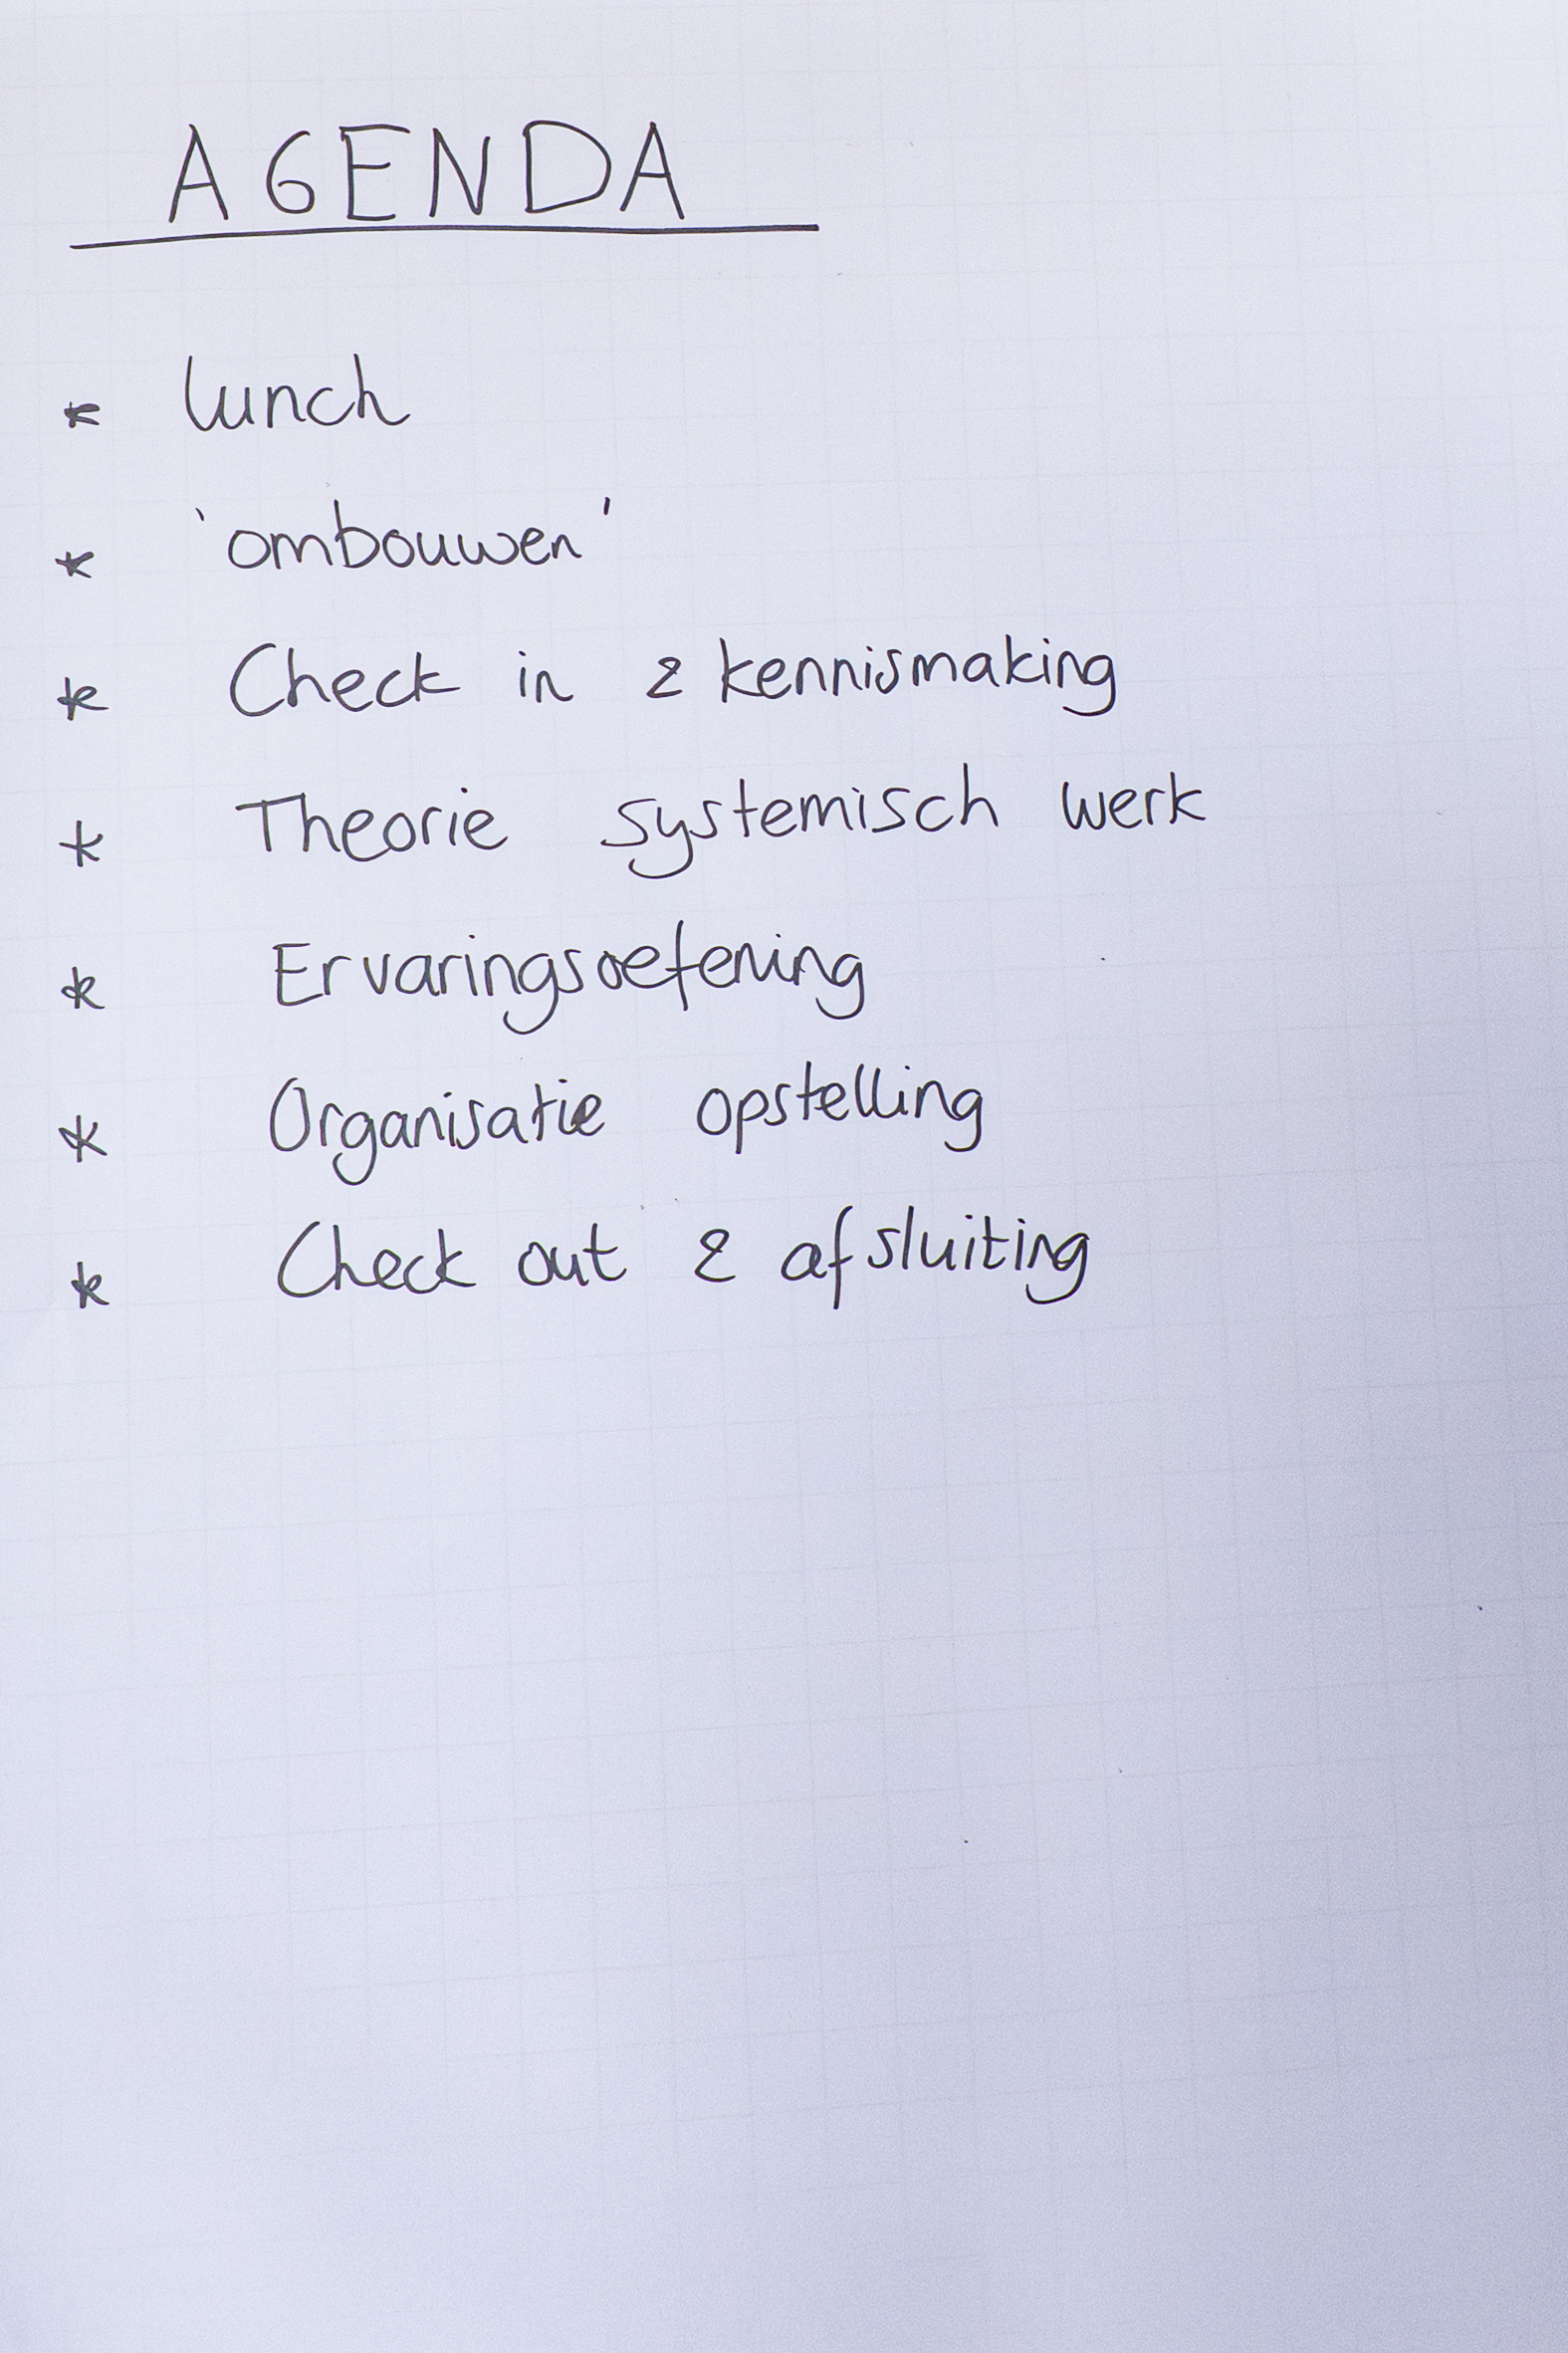 AGENDA
* lunch
* 'ombouwen'
* Check in & kennismaking
* Theorie systemisch werk
* Ervaringsoefening
* Organisatie opstelling
* Check out & afsluiting